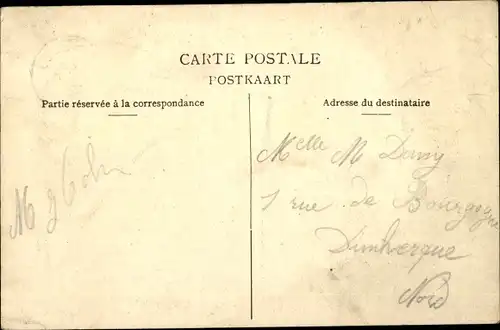 CARTE POSTALE
POSTKAART
Partie réservée à la correspondance
Adresse du destinataire
M
Melle M Damy
1 rue de Bourgogne
Dunkerque
Nord